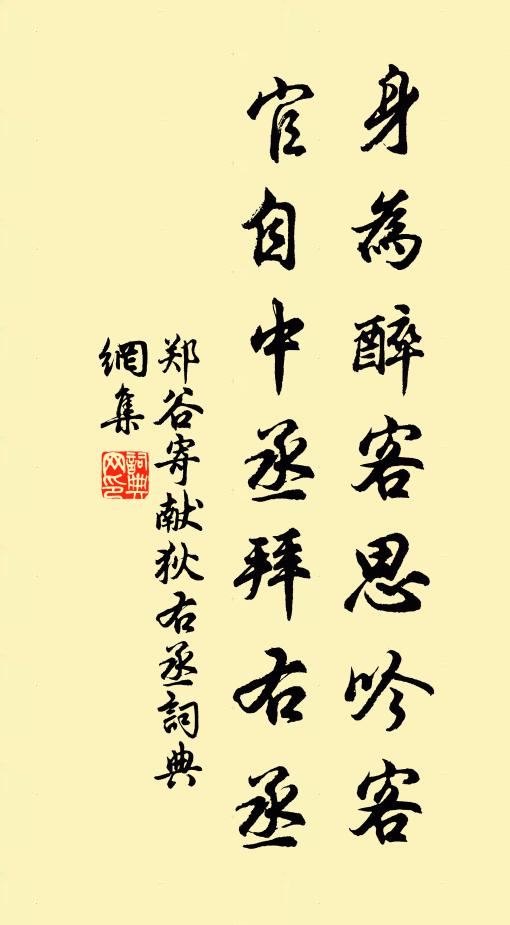 身為醉客思吟客
官自中丞拜右丞
郑谷寄献狄右丞詞典
網集
詞典網印